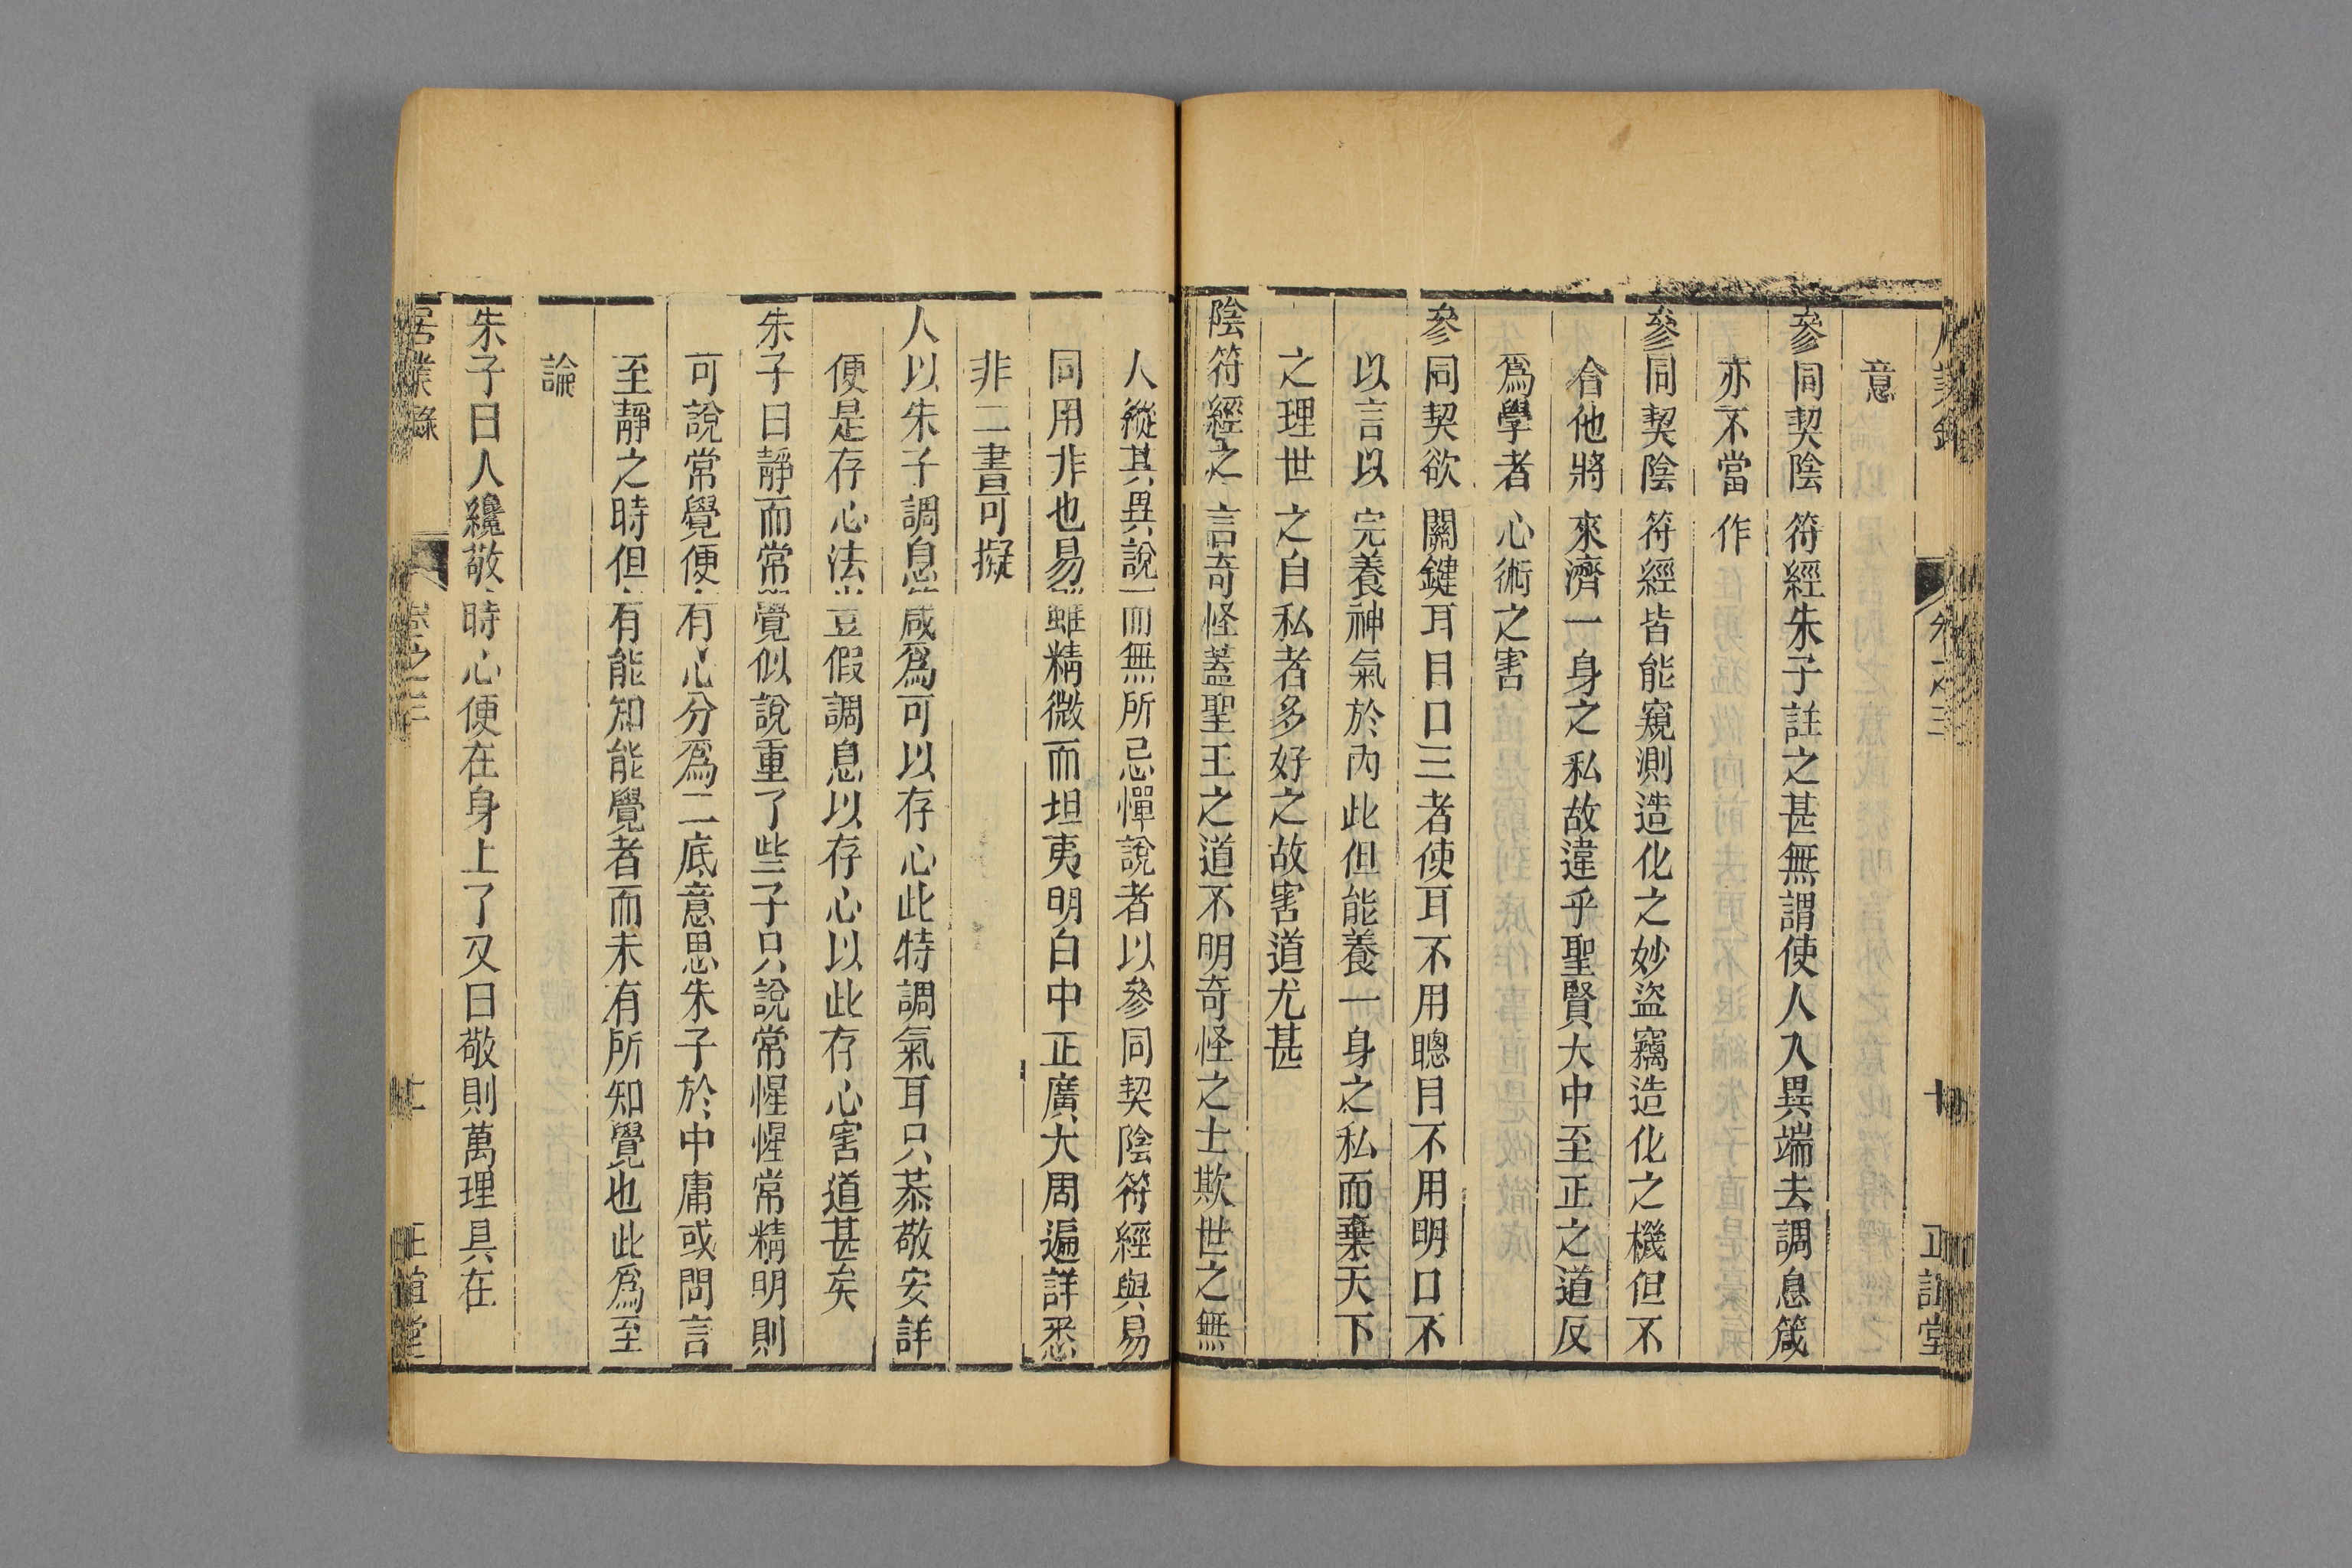 居業錄 卷之三 十 正誼堂
意
參同契陰符經朱子註之甚無謂使人入異端去調息箴
亦不當作
參同契陰符經皆能窺測造化之妙盜竊造化之機但不
合他將來濟一身之私故違乎聖賢大中至正之道反
爲學者心術之害
參同契欲關鍵耳目口三者使耳不用聰目不用明口不
以言以完養神氣於內此但能養一身之私而棄天下
之理世之自私者多好之故害道尤甚
陰符經之言奇怪蓋聖王之道不明奇怪之士欺世之無
人縱其異說而無所忌憚說者以參同契陰符經與易
同用非也易雖精微而坦夷明白中正廣大周遍詳悉
非二書可擬
人以朱子調息箴爲可以存心此特調氣耳只恭敬安詳
便是存心法豈假調息以存心以此存心害道甚矣
朱子曰靜而常覺似說重了些子只說常惺惺常精明則
可說常覺便有心分爲二底意思朱子於中庸或問言
至靜之時但有能知能覺者而未有所知覺也此爲至
論
朱子曰人纔敬時心便在身上了又曰敬則萬理具在
居業錄 卷之三 十一 正誼堂